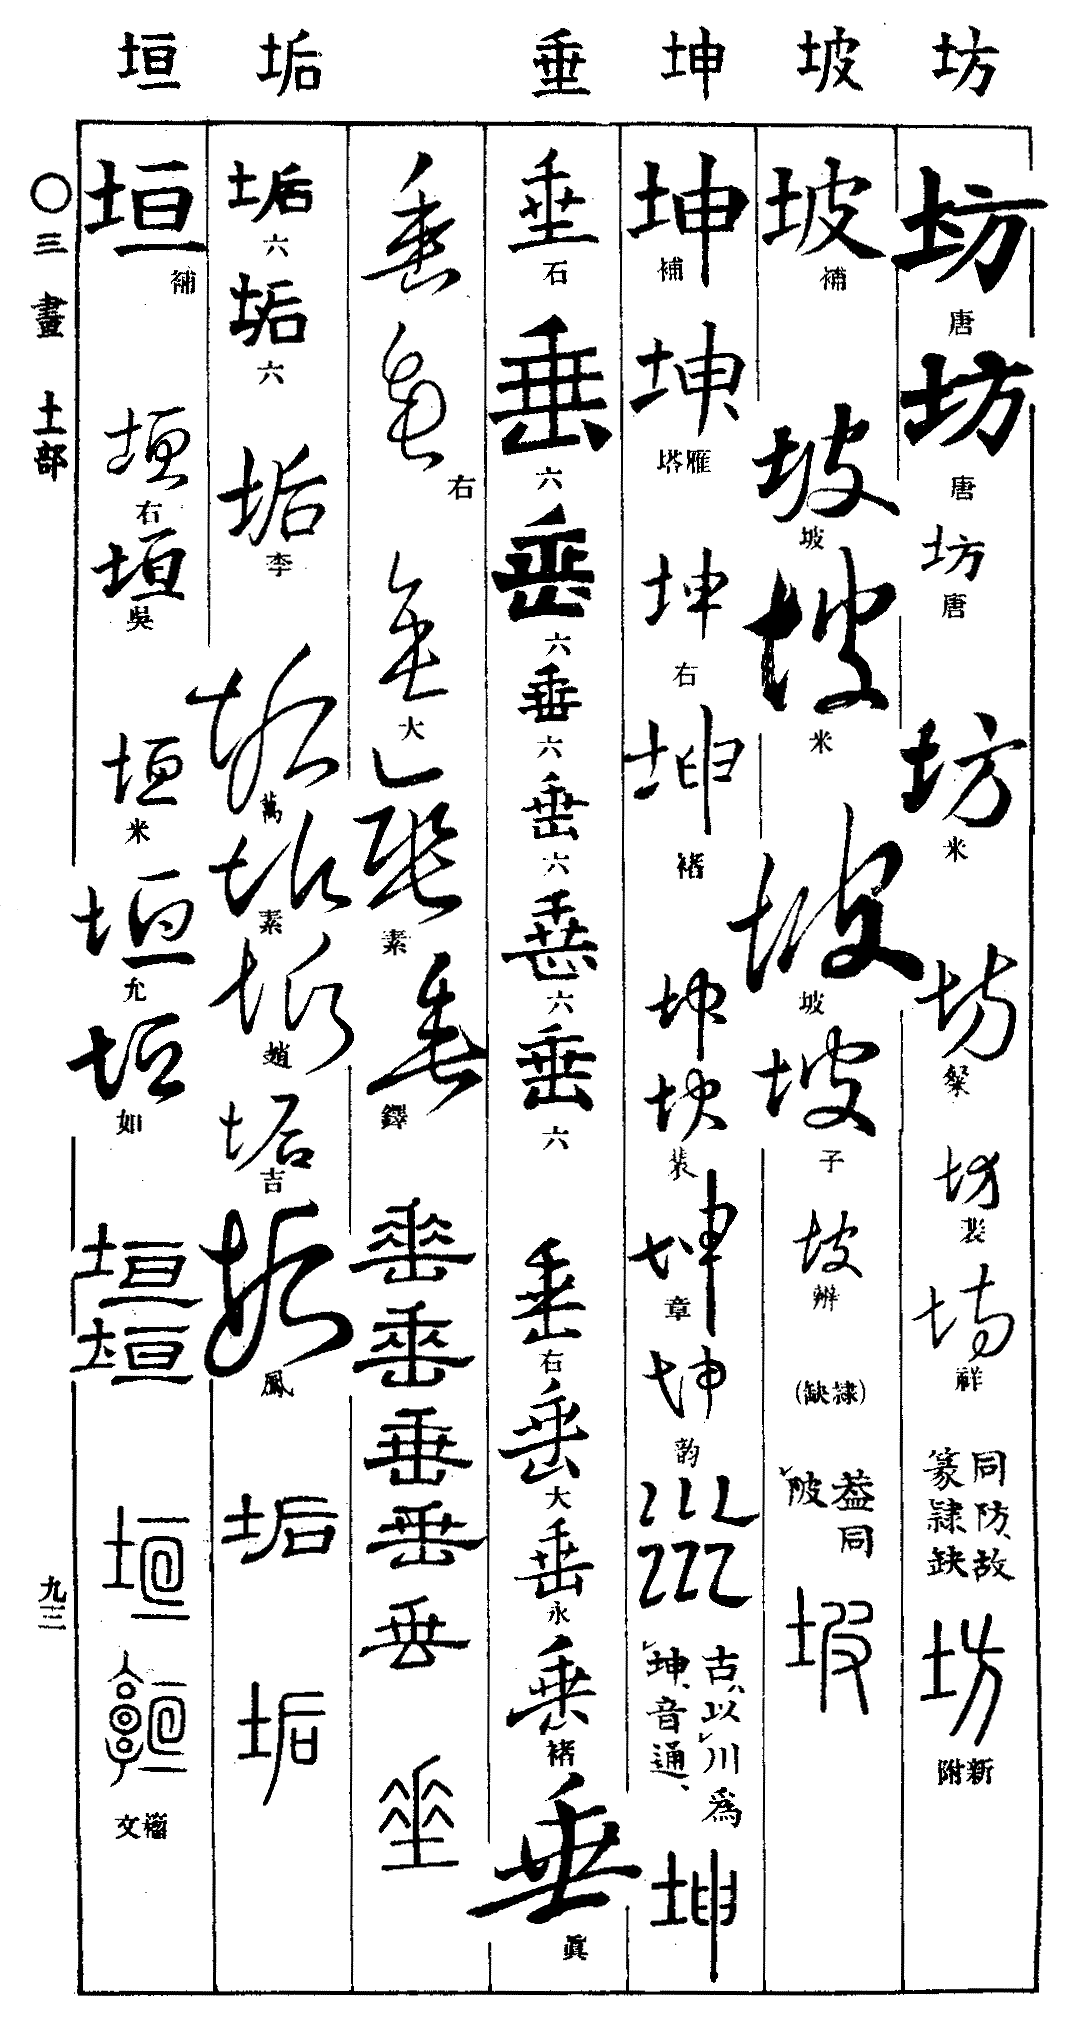 坊 坡 坤 垂 垢 垣
坊 唐 坊 唐 坊 唐 坊 米 坊 粲 坊 裴 坊 祥
同防、故
篆隷缺
坊
新附
坡 補 坡 坡 坡 米 坡 坡 坡 子 坡 辨
(隷缺)
葢同
陂
坡
坤 補 坤 雁塔 坤 右 坤 褚 坤 坤 裴 坤 章 坤 韵
古、以川爲
坤、音通、
坤
垂 石 垂 六 垂 六 垂 六 垂 六 垂 六 垂 六 垂 右 垂 大 垂 永 垂 褚 垂 眞
垂 垂 右 垂 大 垂 素 垂 鐸 垂 垂 垂 垂 垂 垂
垢 六 垢 六 垢 李 垢 萬 垢 素 垢 趙 垢 吉 垢 鳳 垢 垢
垣 補 垣 右 垣 吳 垣 米 垣 允 垣 如 垣 垣 垣
籀文
〇三畫 土部
九三